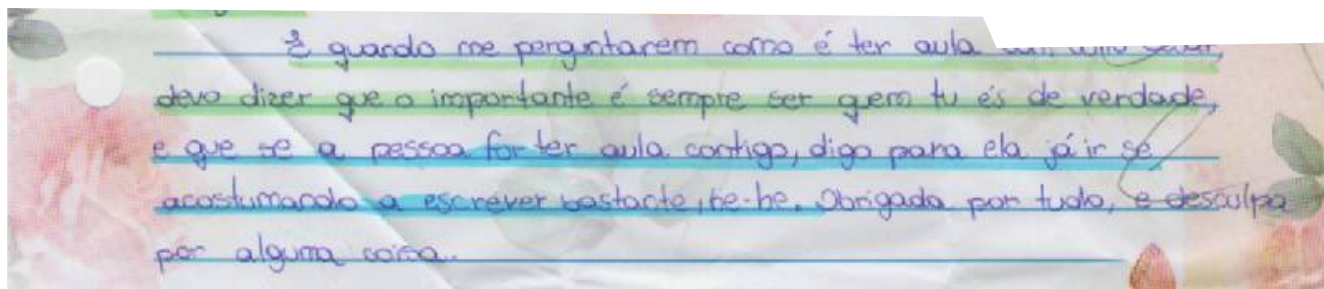 E quando me perguntarem como é ter aula
devo dizer que o importante é sempre ser quem tu és de verdade,
e que se a pessoa for ter aula contigo, digo para ela já ir se
acostumando a escrever bastante, he-he. Obrigada por tudo, e desculpa
por alguma coisa..